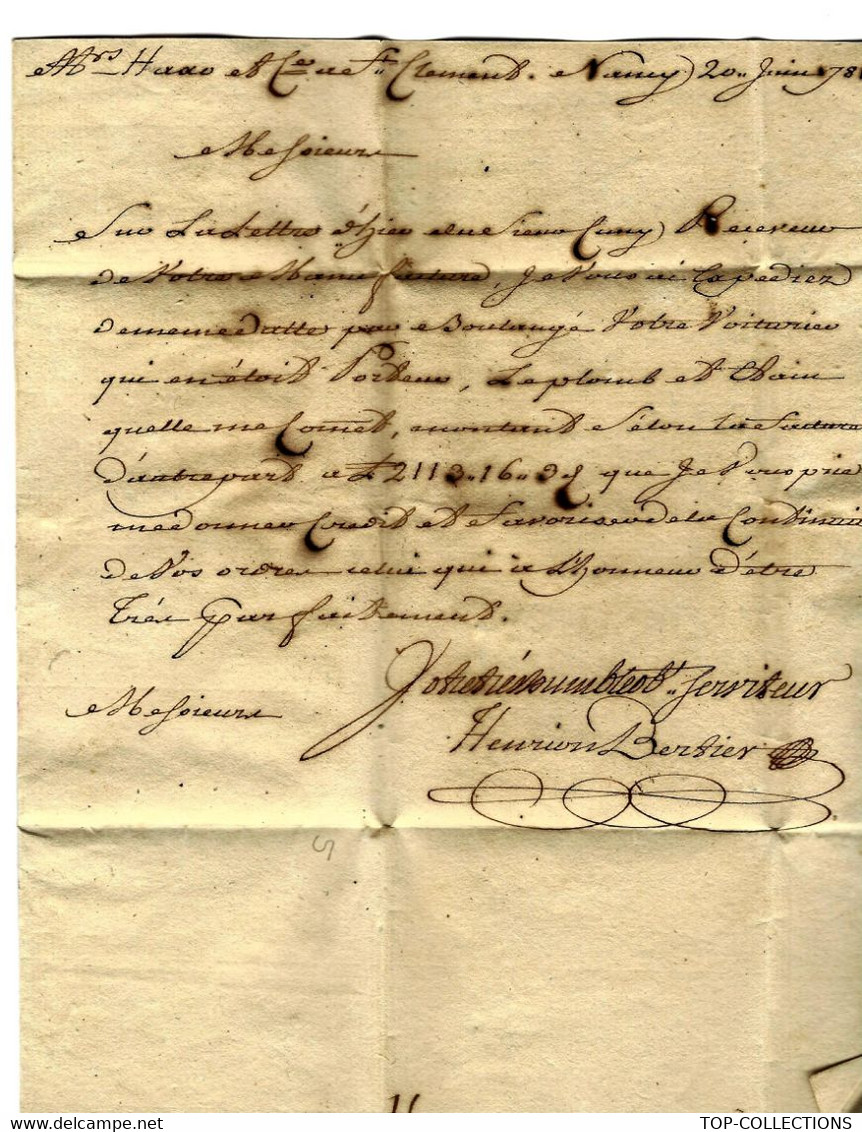 Mrs. Haao et Cie a St. Clement. Nancy 20. Juin 178
Messieurs
Sur La Lettre d'hier du Sieur Cuny Receveur
de Votre Manufacture, Je Vous ai Expediez
de meme datte par Boulangé Votre Voiturier
qui en étoit Porteur, Le plomb et Etain
quelle me Comet, montant Sélon la facture
d'autrepart a £ 2113.. 16.. 3d que Je Vous prie
me donner Credit et favoriser de la Continui
de Vos ordres celui qui à L'honneur d'être
Trés parfaitement.
Messieurs
Votre trés humble obt. Serviteur
Henrion Bertier
TOP-COLLECTIONS